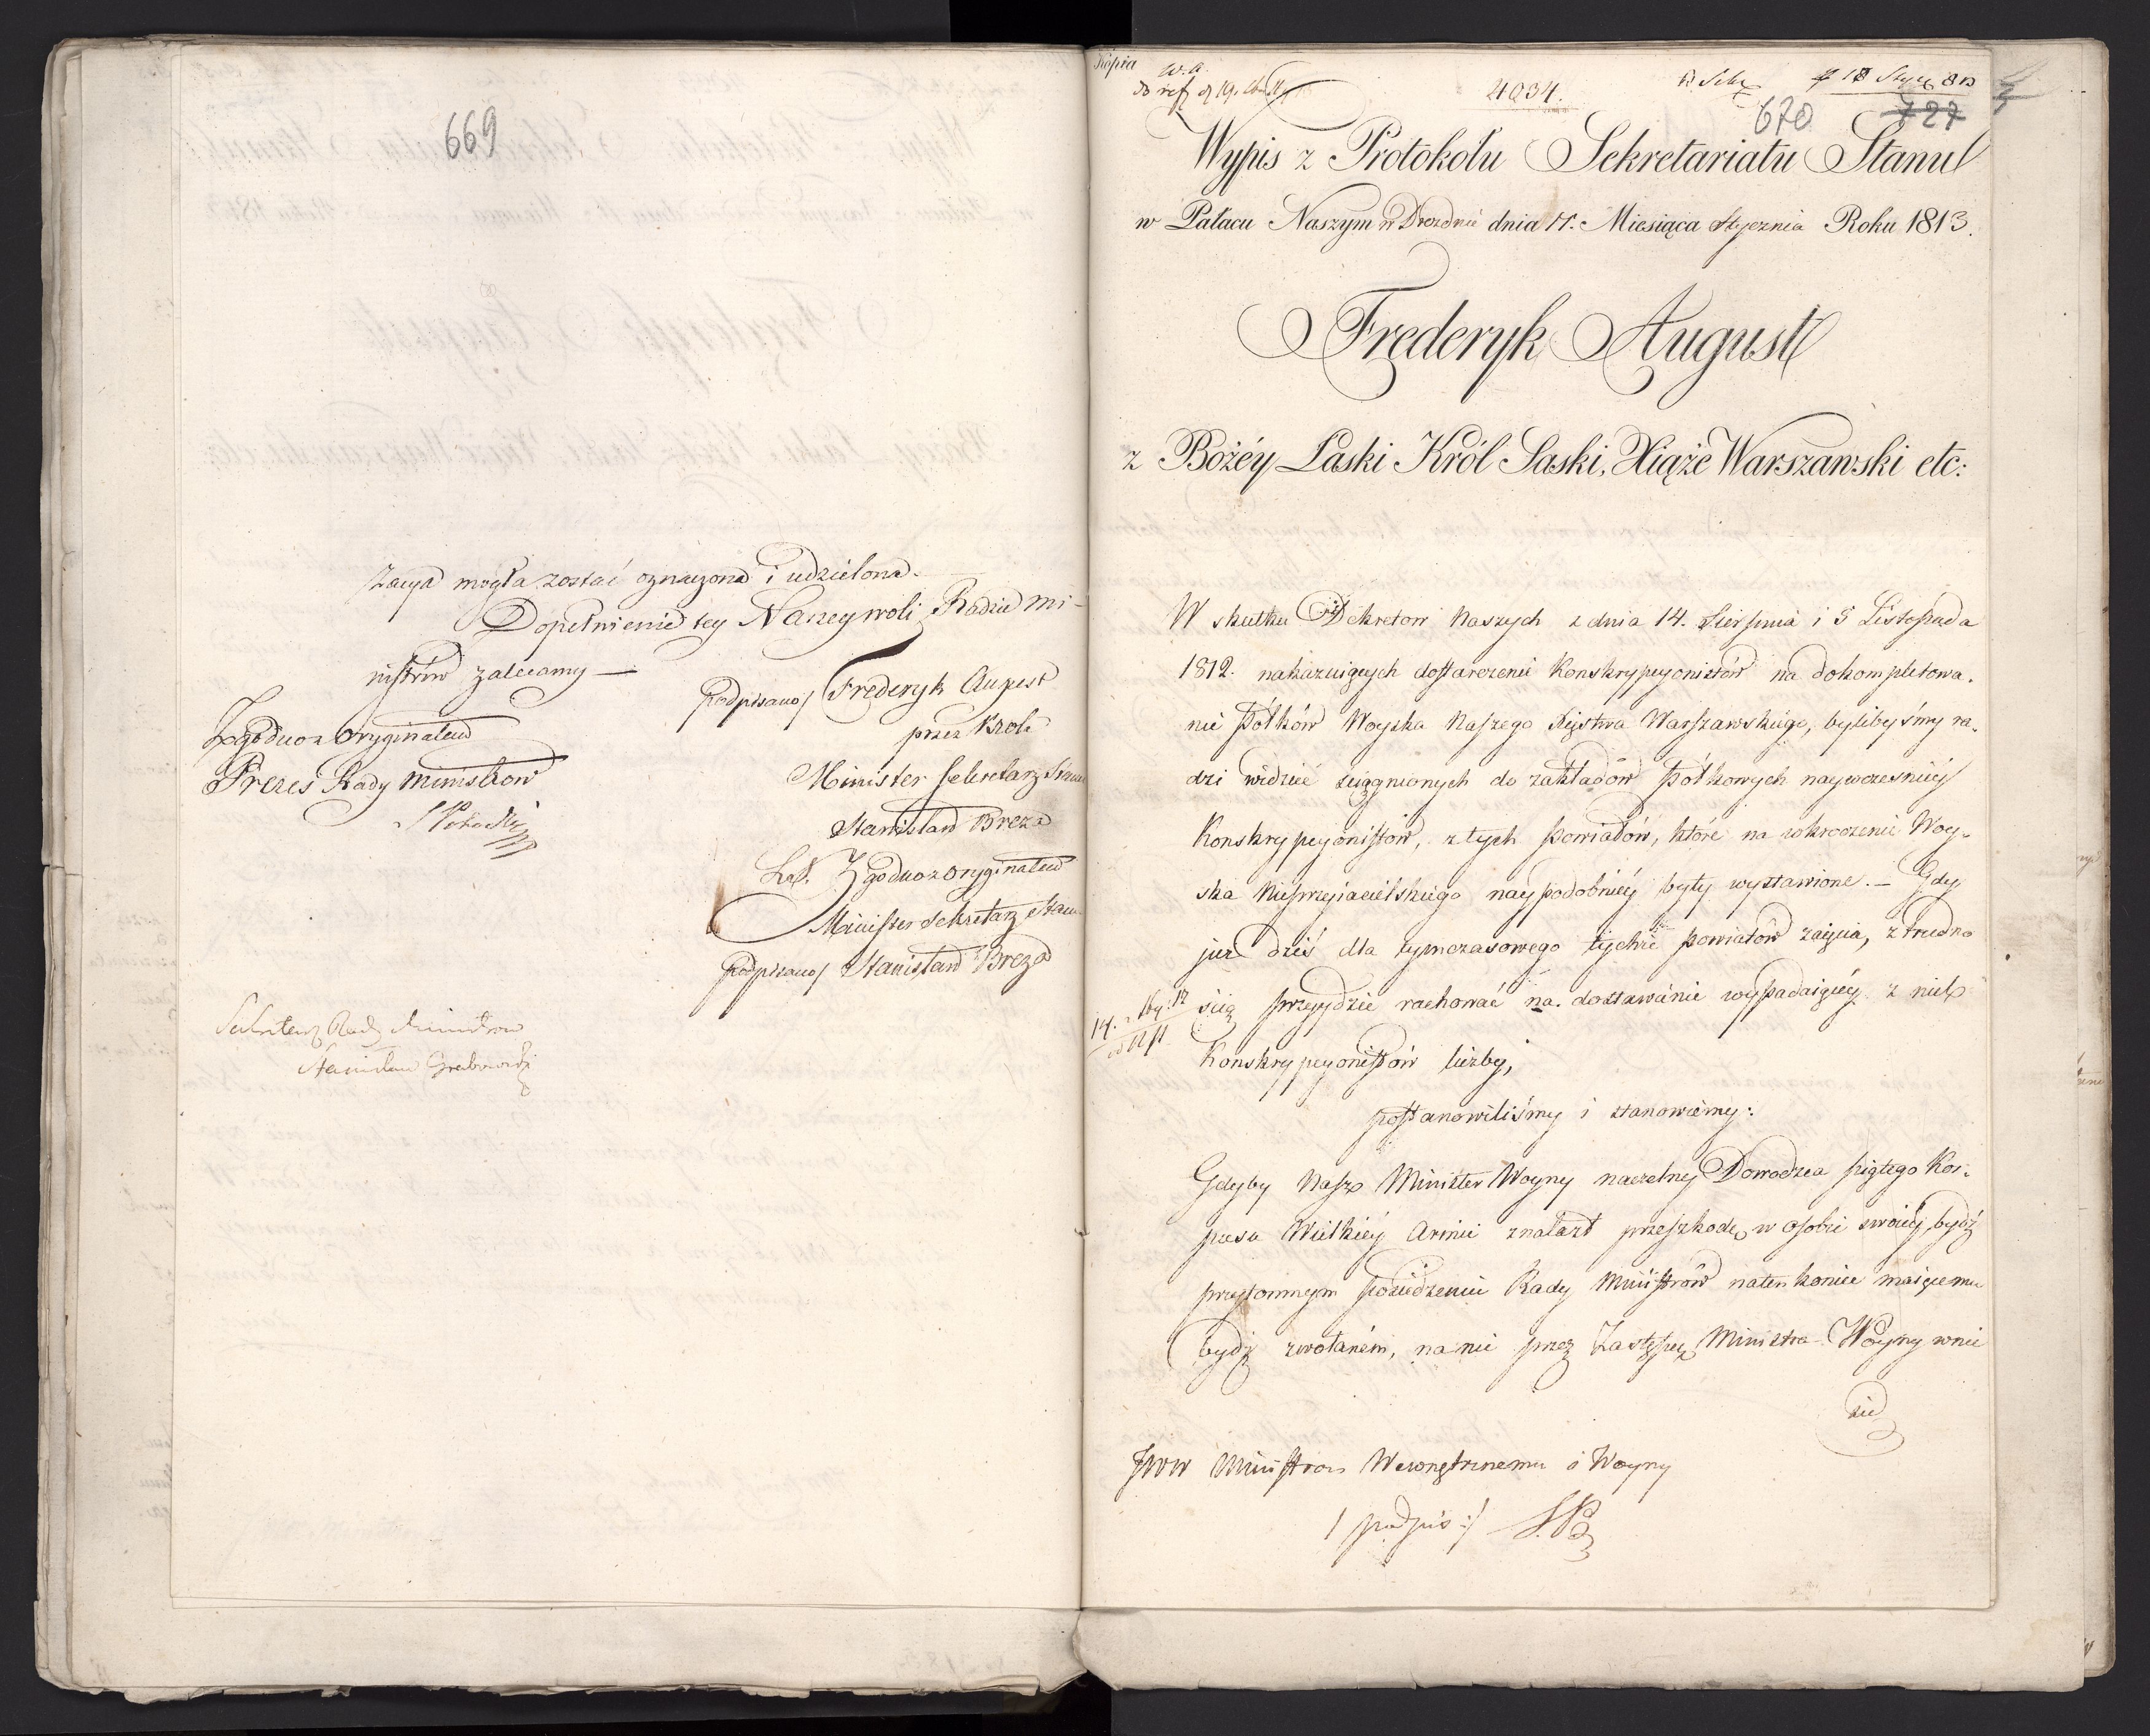 669
zacya mogła zostać oznaczona i udzielona.
Dopełnienie tey Naszey woli Radzie Mi-
nistrów zalecamy —
podpisano/ Frederyk August
przez Krola
Minister Sekretarz Stanu
Stanisław Breza
Zgodno z Oryginałem
Minister Sekretarz Stanu
podpisano/ Stanisław Breza
Zgodno z Oryginałem
Prezes Rady Ministrow
Sekretarz Rady Ministrow
Stanisław Grabowski
Kopia
4034.
670
727
Wypis z Protokołu Sekretariatu Stanu
w Pałacu Naszym w Dreznie dnia Miesiąca Stycznia Roku 1813.
Frederyk August
z Bożéy Łaski Król Saski, Xiąże Warszawski etc:
W skutku Dekretow Naszych z dnia 14. Sierpnia i 5 Listopada
1812. nakazuiących dostarczenie Konskrypcyonistów na dokompletowa-
nie Półków Woyska Naszego Xięstwa Warszawskiego, bylibyśmy ra-
dzi widzieć ściągnionych do zakładów Półkowych naywcześniéy
Konskrypcyonistów, z tych powiatów, które na wkroczenie Woy-
ska Nieprzyiacielskiego naypodobniéy były wystawione. — Gdy
już dziś dla tymczasowego tychże powiatów zaięcia, z trudno
ścią przeyydzie rachować na dostawienie wypadaiącéy z nich
Konskrypcyonistów liczby,
postanowiliśmy i stanowiemy:
Gdyby Nasz Minister Woyny naczelny Dowodzca piątego Kor-
pusu Wielkiéy Armii znalazł przeszkodę w osobie swoiéy, bydź
przytomnym posiedzeniu Rady Ministrów naten koniec maiącemu
bydź zwołaném, na nie przez Zastępcę Ministra Woyny wnie
sie
JWW Ministrom Wewnętrznemu i Woyny
/podpis:/